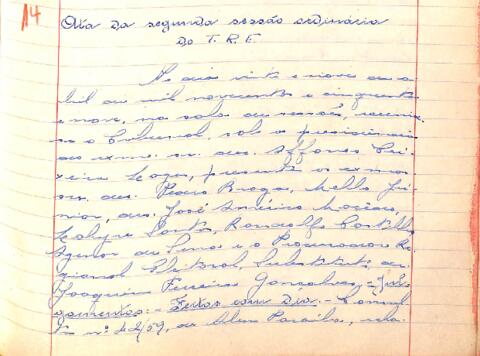 14
Ata da segunda sessão ordinária
do T. R. E.
Aos dias vinte e nove de a-
bril de mil novecentos e cinquenta
e nove, na sala de sessões, reuniu-
se o Tribunal, sob a presidência
do exmo. sr. des. Affonso Tei-
xeira Lages, presentes os exmos.
srs. des. Pedro Braga, Mello Jú-
nior, drs. José Américo Macêdo,
Santos, Rondolfo Castilho
de Lima e o Procurador Re-
gional Eleitoral, Substituto, dr.
Joaquim Ferreira Gonçalves. - Jul-
gamentos: - Feitos com Dia: - Consul-
ta nº 42/59, de Além Paraíba, rela-